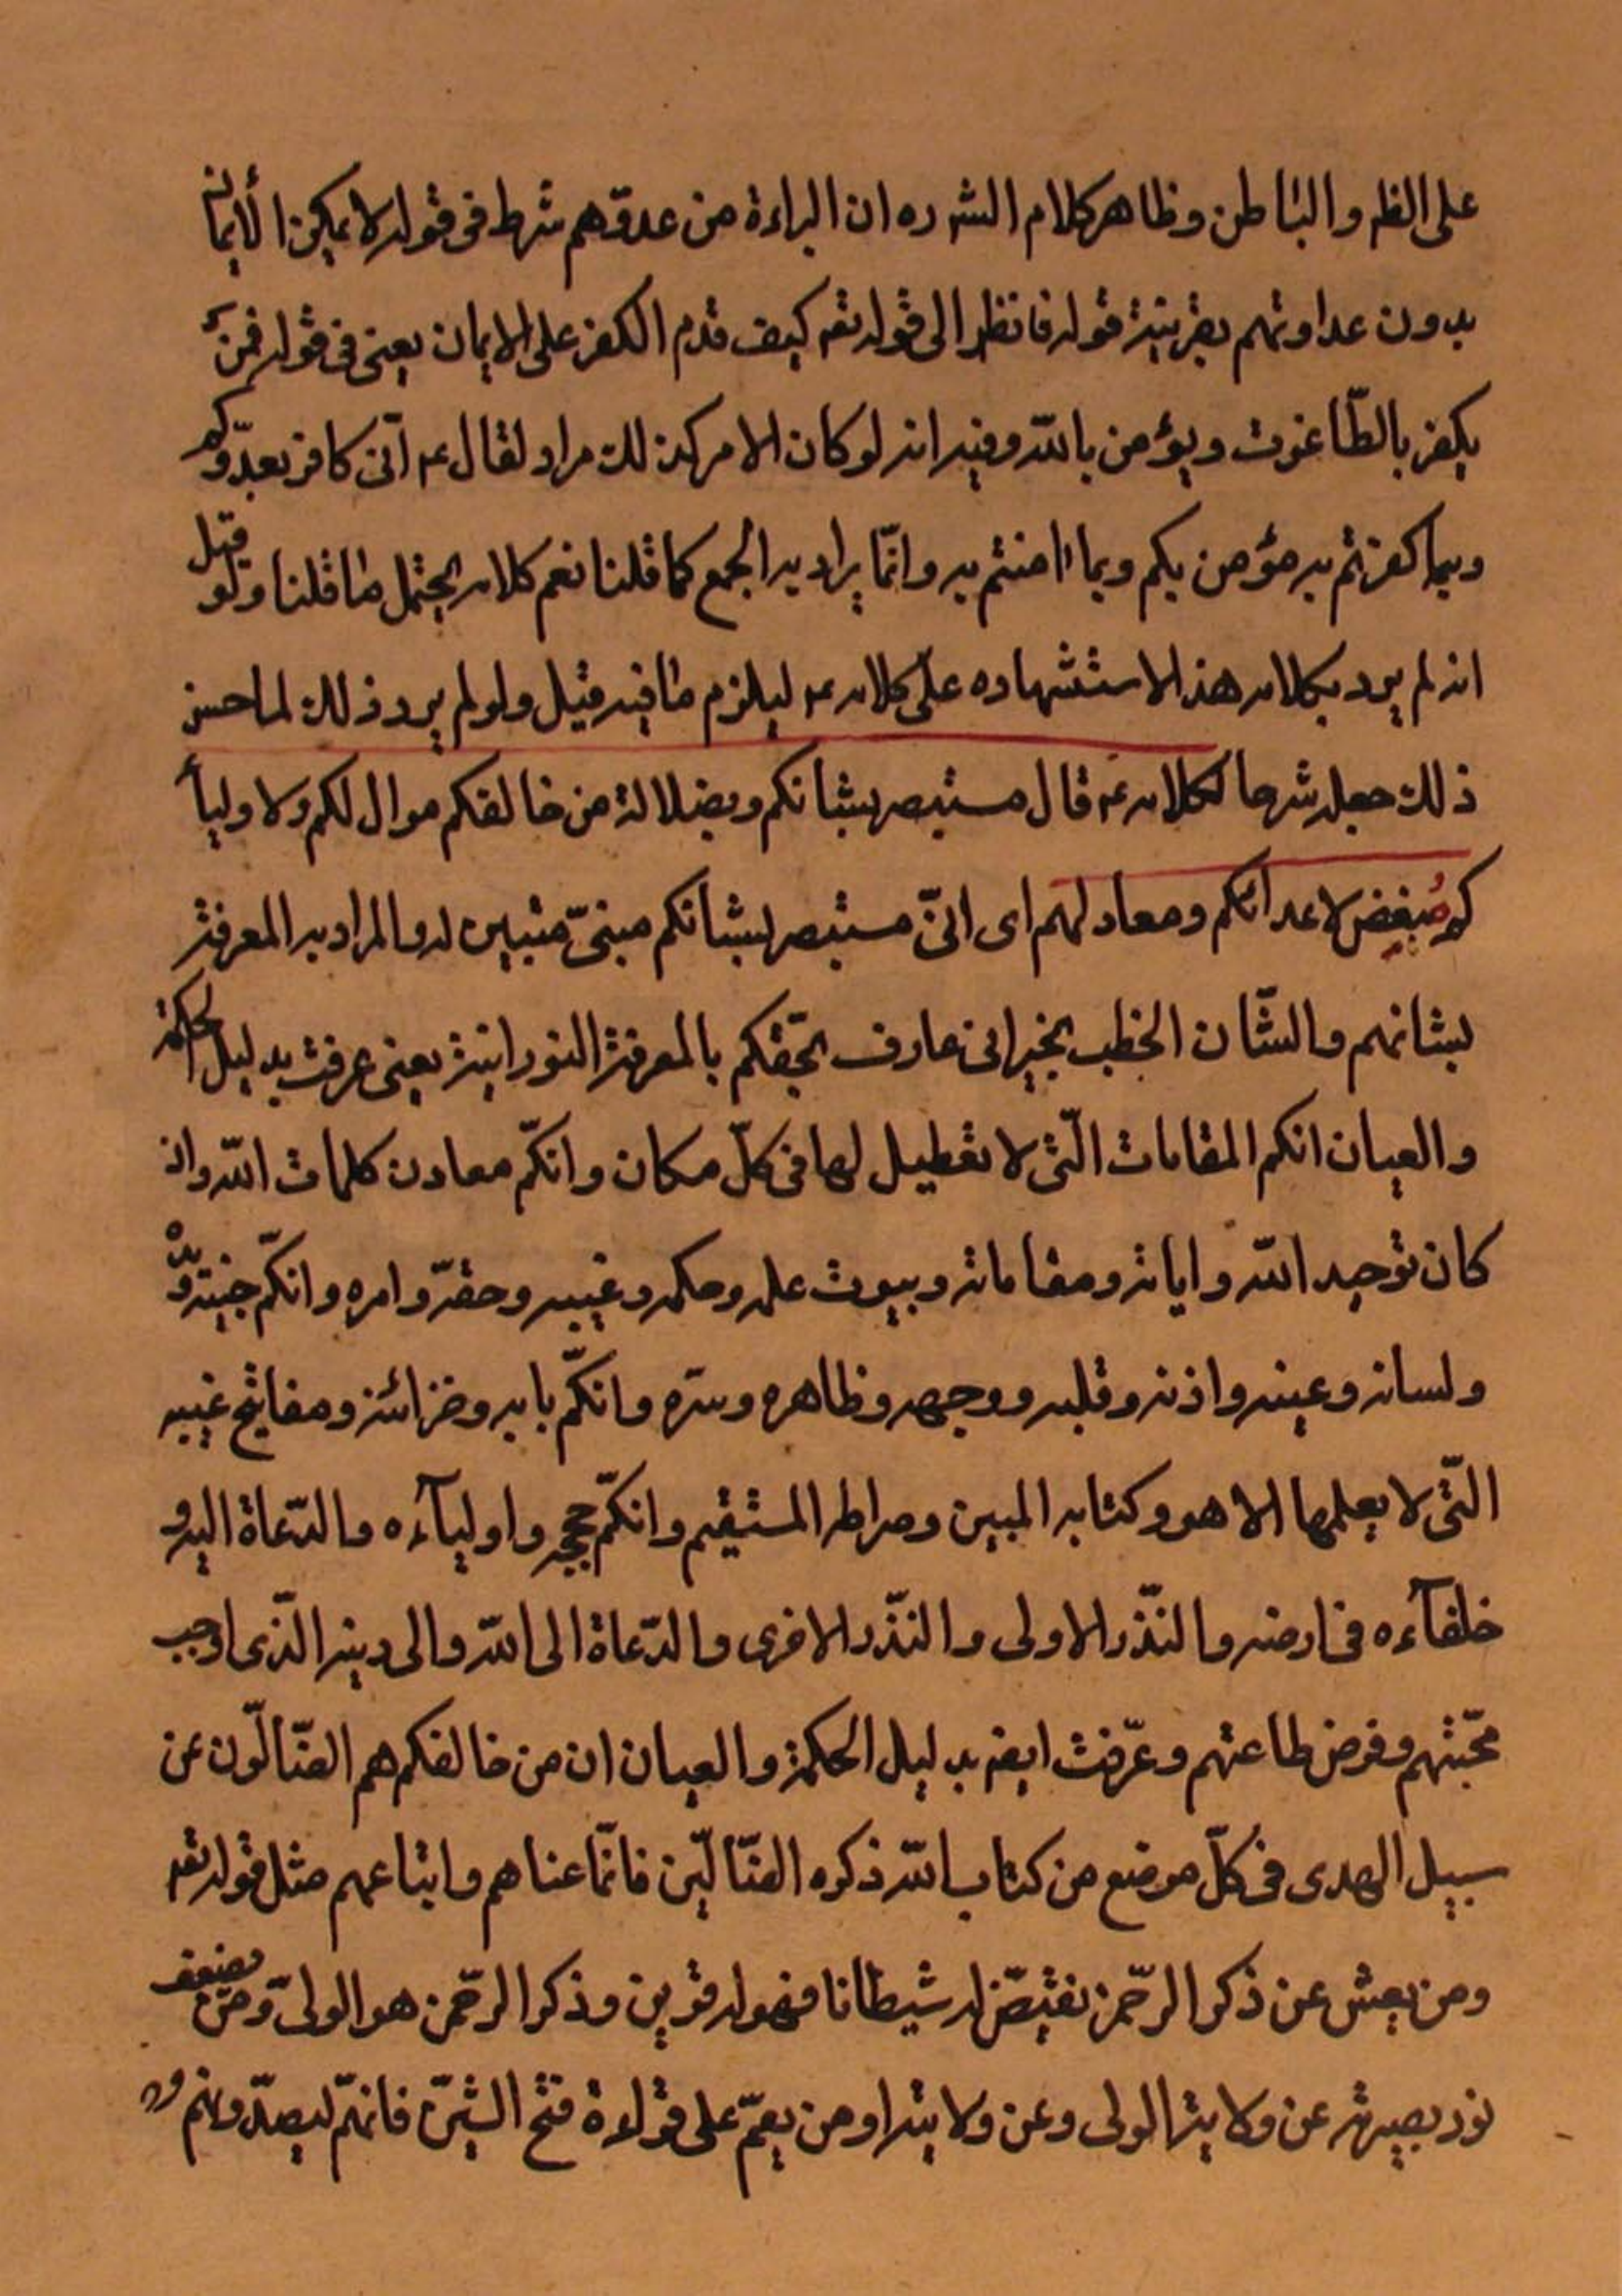 على الظم والباطن وظاهر كلام الشه ره ان البراءة من عدوّهم شرط في قوله لا يمكن الأيمان
بدون عداوتهم بقرينة قوله فانظر الى قوله تعم كيف قدم الكفر على الايمان يعنى فى قوله فمن
يكفر بالطّاغوت ويؤمن بالله وفيه انه لو كان الامر كذلك مراد لقال ع انّى كافر بعدّوكم
وبما كفرتم به مؤمن بكم وبما امنتم به وانّما يراد به الجمع كما قلنا نعم كلامه يحتمل ما قلنا ولو قيل
انه لم يرد بكلامه هذا الاستشهاده على كلامه ع ليلزم ما فيه قيل ولو لم يرد ذلك لما حسن
ذلك جعله شرحا لكلامه ع قال مستبصر بشانكم وبضلالة من خالفكم موال لكم ولاوليآ
ئكم مُبغِض لاعدائكم ومعاد لهم اى انّى مستبصر بشانكم مبنىّ متبين له والمراد به المعرفة
بشانهم والشّان الخطب يخبر انى عارف بحقّكم بالمعرفة النورانية يعنى عرفت بدليل الحكمة
والعيان انكم المقامات الّتى لا تعطيل لها فى كلّ مكان وانكّم معادن كلمات الله وار
كان توحيد الله واياته ومقاماته وبيوت علمه وحكمه وغيبه وحقّه وامره وانكّم جنبه ويّده
ولسانه وعينه واذنه وقلبه ووجهه وظاهره وسرّه وانكّم بابه وخزائنه ومفاتيح غيبه
التّى لا يعلمها الا هو وكتابه المبين وصراطه المستقيم وانكّم حججه واوليآءه والدّعاة اليه و
خلفآءه فى ارضه والنّذر الاولى والنّذر الاخرى والدّعاة الى الله والى دينه الّذى اوجب
محّبتهم وفرض طاعتهم وعرّفت ايضم بدليل الحكمة والعيان ان من خالفكم هم الضّالّون عن
سبيل الهدى فى كلّ موضع من كتاب الله ذكره الضّالّين فانّما عناهم واتباعهم مثل قوله تعم
ومن يعش عن ذكر الرّحمن نقيّض له شيطانا فهو له قرين وذكر الرّحمن هو الولىّ ومن يضعف
نور بصيرته عن ولاية الولى وعن ولايته او من يعمّ على قراءة فتح الشّين فانهّم ليصدّونهم